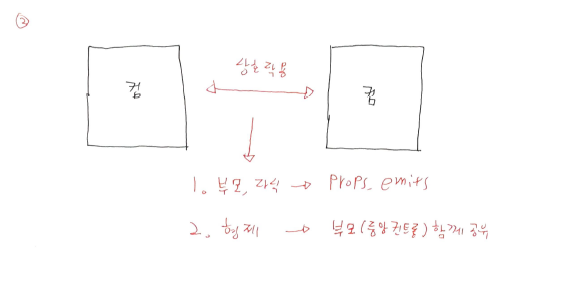 ②
컴 상호작용 컴
1. 부모, 자식 → props, emits
2. 형제 → 부모(중앙컨트롤) 함께 공유